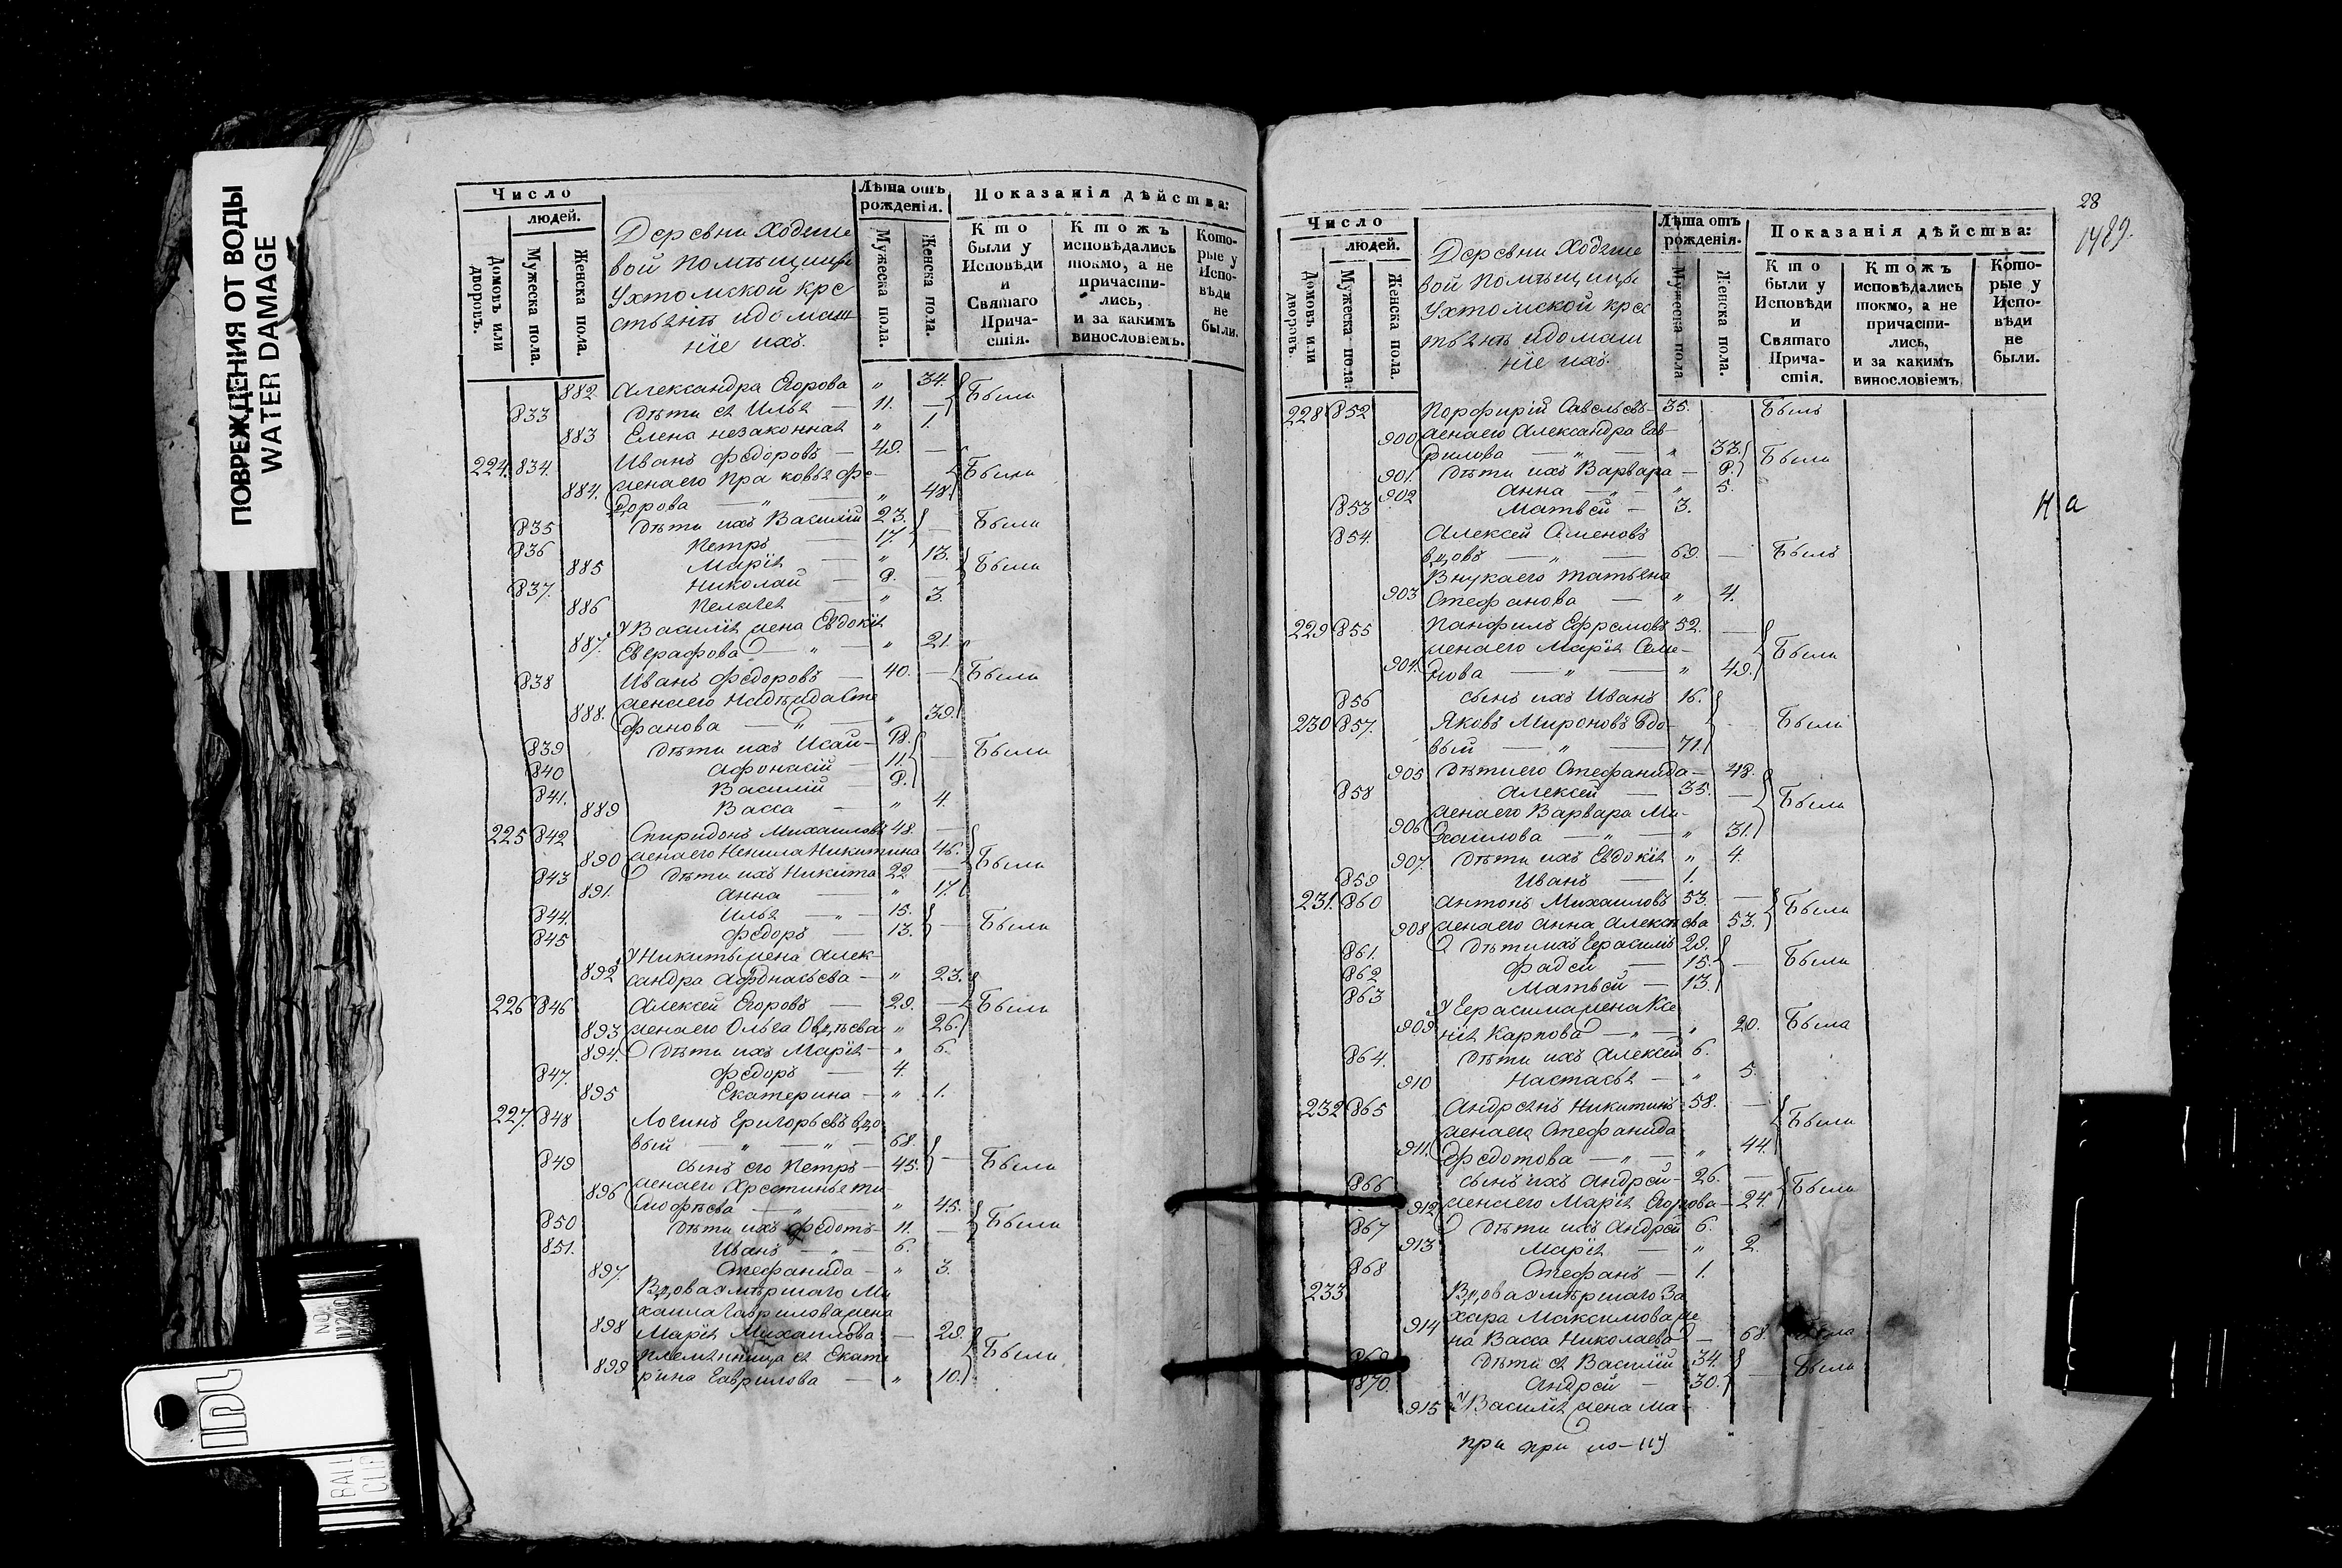 ПОВРЕЖДЕНИЯ ОТ ВОДЫ
WATER DAMAGE
Число
людей.
Домовъ или дворовъ.
Мужеска пола.
Женска пола.
Лѣта отъ рожденія.
Мужеска пола.
Женска пола.
Показанія дѣйства:
Кто были у Исповѣди и Святаго Причастія.
Ктожъ исповѣдались токмо, а не причастились, и за какимъ винословіемъ.
Которые у Исповѣди не были.
вой помѣщицы
Ухтомской кре
стьянъ идомаш
ніе ихъ
882 Александра Егорова „ 34. Были
833 дѣти ея Илья — 11. —
883 Елена незаконная „ 1.
224. 834. Иванъ Федоровъ — 49. — Были
884. жена его Прасковья Фе-
дорова — „ — „ 48.
835 дѣти ихъ Василій 23. — Были
836 Петръ — 17.
885 Марія — „ 13. Были
837. Николай — 8. —
886 Пелагея — „ 3.
У Василія жена Евдокія
887. Евграфова — „ — „ 21.
838 Иванъ Федоровъ — 40. — Были
888. жена его Надежда Сте
фанова — „ — „ 39.
839 дѣти ихъ Исаи — 18. — Были
840 Афонасій — 11.
841. Василій — 8.
889 Васса — „ 4.
225 842 Спиридонъ Михаиловъ 48. —
890 жена его Ненила Никитина 46. Были
843 дѣти ихъ Никита 22 —
891. Анна — „ 17.
844. Илья — „ — 15. — Были
845 Федоръ — 13.
У Никиты жена Алек-
892 сандра Афонасьева — „ 23.
226 846 Алексей Егоровъ — 29. — Были
893 жена его Ольга Овдѣева „ 26.
894. дѣти ихъ Марія — „ 6.
847. Федоръ — 4.
895 Екатерина — „ 1.
227. 848 Логинъ Григорьевъ вдо
вый — „ — „ — 68.
849 сынъ его Петръ — 45. — Были
896 жена его Хрестинья Ти
мофѣева — „ — „ 45.
850 дѣти ихъ Федотъ — 11. — Были
851. Иванъ — „ — 6.
897. Стефанида — „ 3.
Вдова умѣршаго Ми
хаила Гаврилова жена
898 Марія Михаилова — 29. Были
племянница ея Екате
899 рина Гаврилова — „ 10.
28
Число
людей.
Домовъ или дворовъ.
Мужеска пола.
Женска пола.
Лѣта отъ рожденія.
Мужеска пола
Женска пола.
Показанія дѣйства:
Кто были у Исповѣди и Святаго Причастія.
Ктожъ исповѣдались токмо, а не причастились, и за какимъ винословіемъ
Которые у Исповѣди не были.
вой помѣщицы
Ухтомской крес
тьянъ идомаш
ніе ихъ
228 852 Порфирій Савельевъ — 35. Былъ
900 жена его Александра Гав-
рилова — „ — „ 33. Были
901. дѣти ихъ Варвара — 8.
902 Анна — „ — „ 5.
853 Матвей — 3.
На
854. Алексей Семеновъ
вдовъ — „ — 69. — Былъ
Внука его Татьяна
903 Стефанова — „ 4.
229 855 Панфилъ Ефремовъ 52. — Были
жена его Марія Семе-
904. нова — „ — „ 49.
856 сынъ ихъ Иванъ 16.
230 857. Яковъ Мироновъ вдо- — Были
вый — „ — 71.
905 дѣти его Стефанида — 48.
858 Алексей — 35. — Были
жена его Варвара Ми-
906 хаилова — „ — „ 31.
907. дѣти ихъ Евдокія „ 4.
859 Иванъ — 1.
231. 860 Антонъ Михаиловъ 53. — Были
908 жена его Анна Алексѣева 53.
861. дѣти ихъ Герасимъ 29. — Были
862 Фадей — 15.
863 Матвей — 13.
У Герасима жена Ксе
909 нія Карпова — „ — „ 20. Была
864. дѣти ихъ Алексей 6.
910 Настасья — „ 5.
232 865 Андреянъ Никитинъ 58. — Были
жена его Стефанида
911. Федотова — „ — „ 44.
866 сынъ ихъ Андрей — 26. — Были
912 жена его Марія Егорова — 24.
867 дѣти ихъ Андрей 6.
913 Марія — „ 2.
868 Стефанъ — 1.
233 Вдова умѣршаго За
хара Максимова же
914 на Васса Николаева — 68. Была
869 дѣти ея Василій 34. — Были
870. Андрей — 30.
915 У Василія жена Ма-
BALL
CLIP